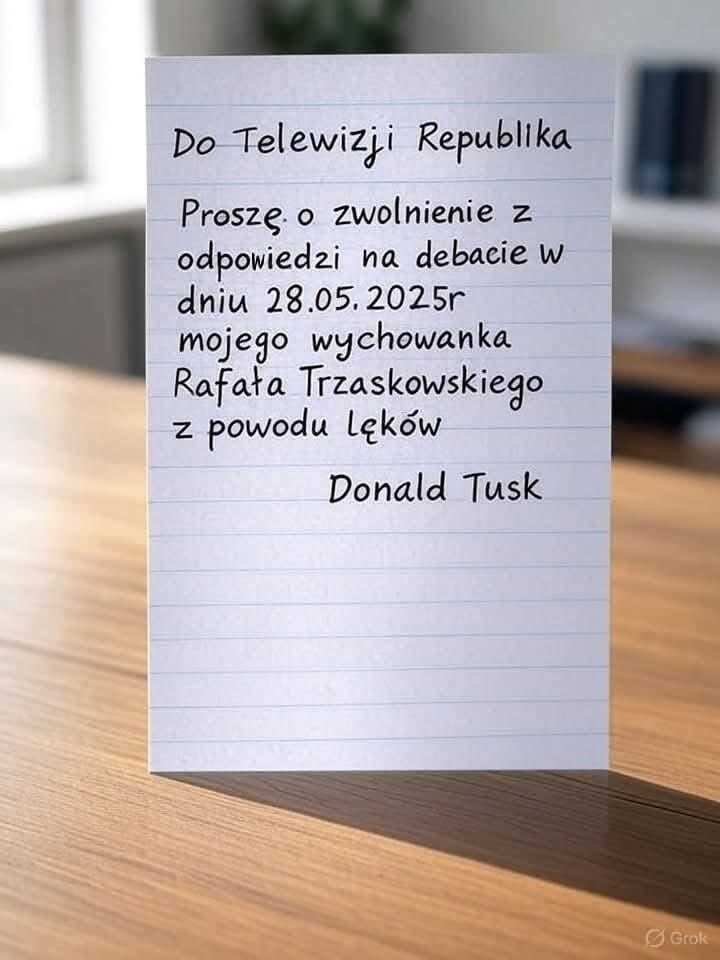 Do Telewizji Republika
Proszę o zwolnienie z
odpowiedzi na debacie w
dniu 28.05.2025r
mojego wychowanka
Rafała Trzaskowskiego
z powodu lęków
Donald Tusk
Grok